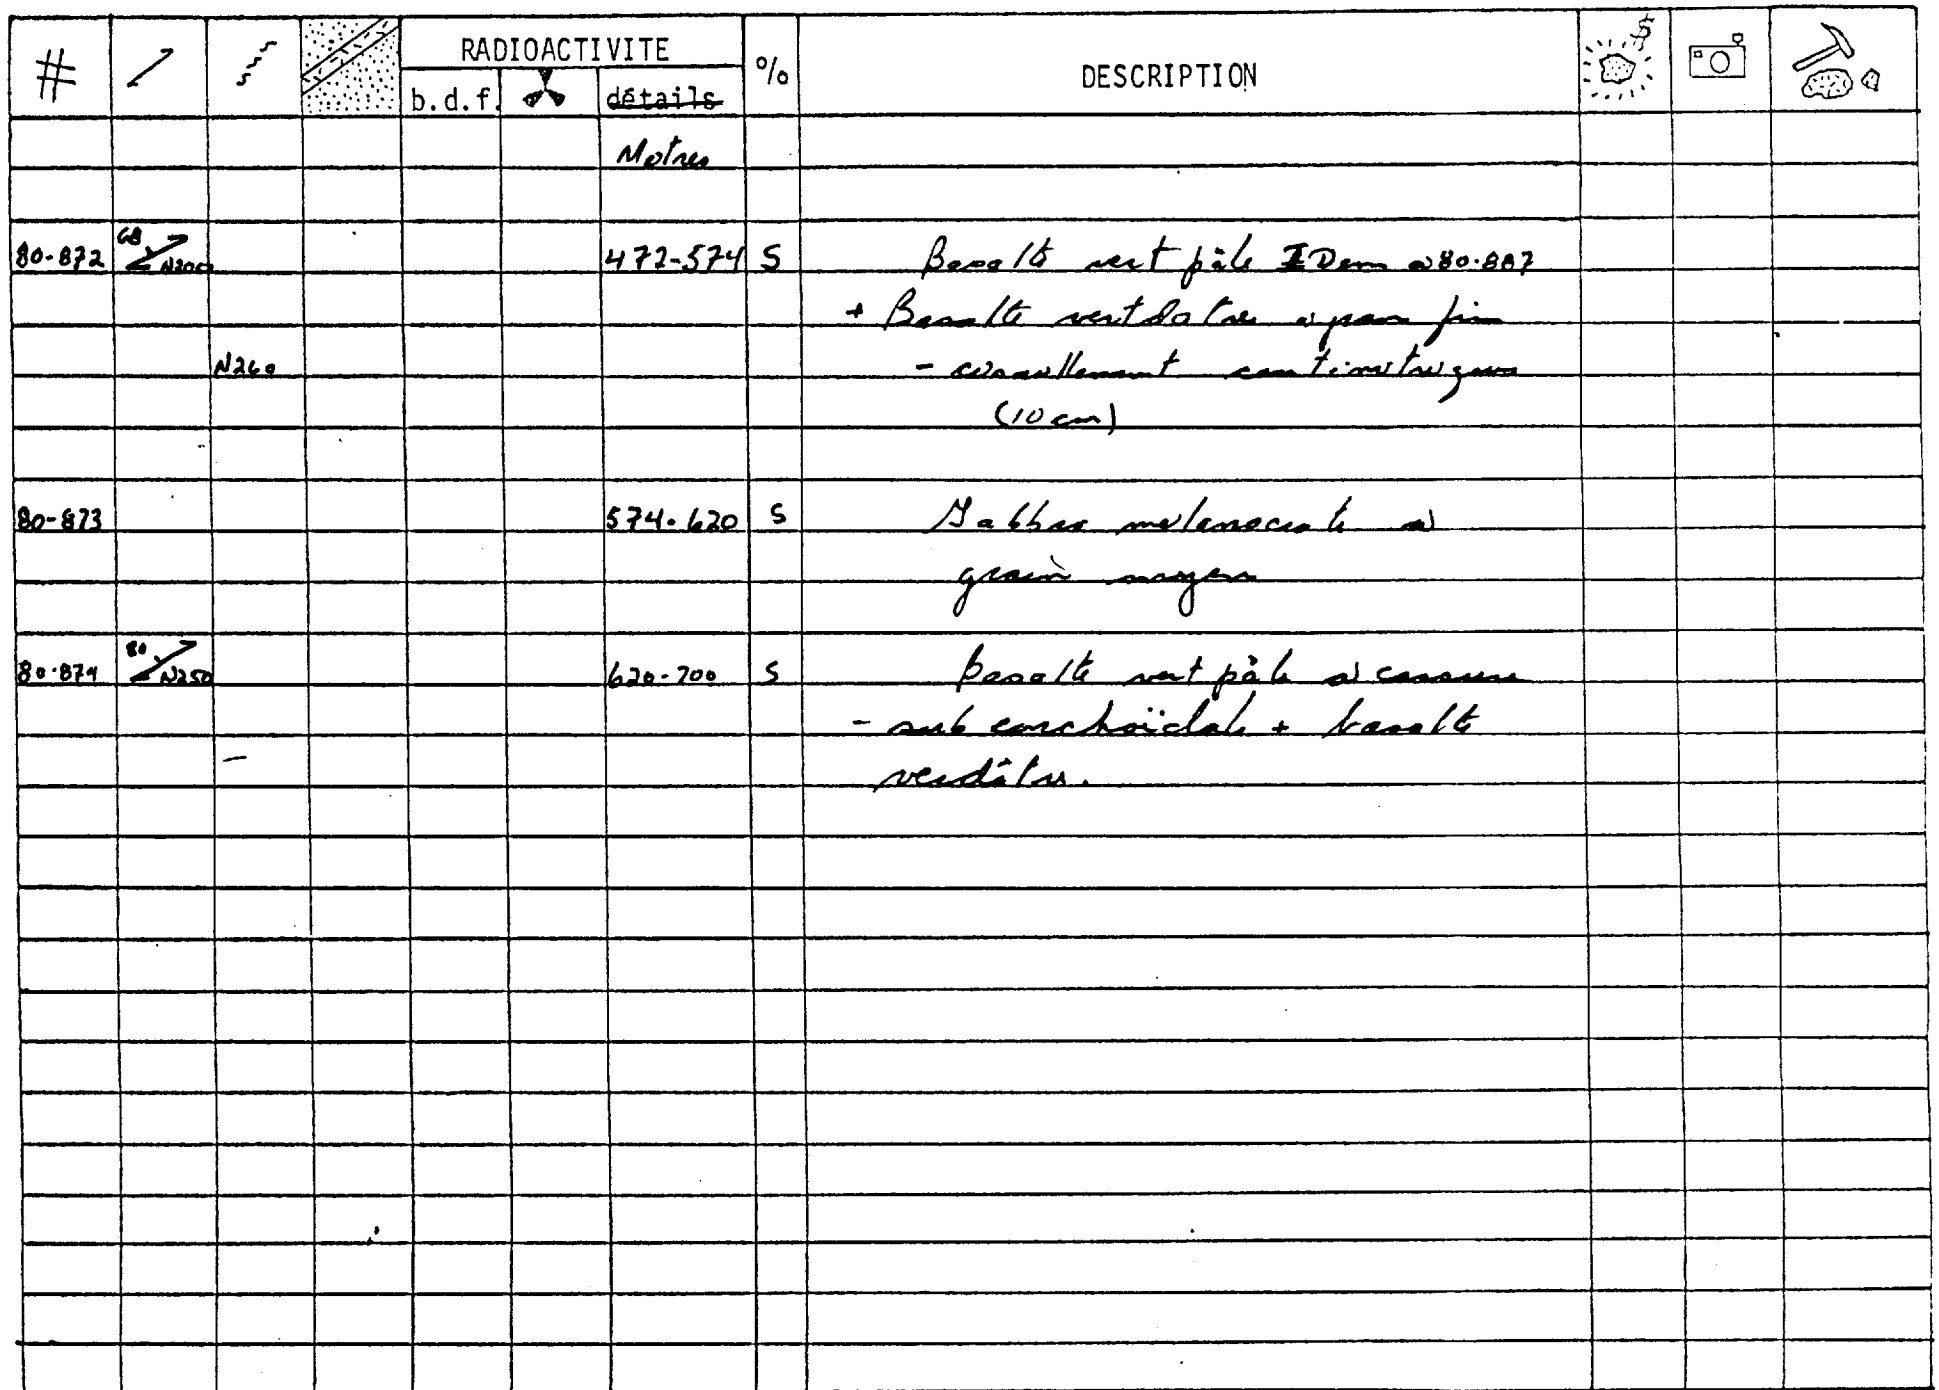 # RADIOACTIVITE % DESCRIPTION $
b.d.f. détails
Metres
80-872 68 N200 472-574 S Basalte vert pâle IDem a 80-887
+ Basalte verdatre a grain fin
N260 - cisaillement centimetrique
(10 cm)
80-873 574-620 S Gabbro melanocrate a
grain moyen
80-874 80 N250 620-700 S Basalte vert pâle a cassure
- sub conchoïdale + basalte
verdâtre.